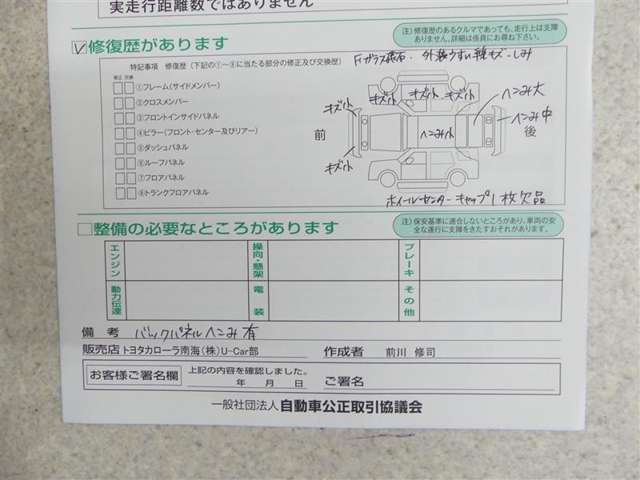 実走行距離数ではありません
修復歴があります
(注)修復歴のあるクルマであっても、走行上は支障ありません。詳細は係員にお尋ね下さい。
特記事項 修復歴（下記の①～⑧に当たる部分の修正及び交換歴）
修正 交換
①フレーム(サイドメンバー)
②クロスメンバー
③フロントインサイドパネル
④ピラー(フロント・センター及びリアー)
⑤ダッシュパネル
⑥ルーフパネル
⑦フロアパネル
⑧トランクフロアパネル
Fガラス飛石・外装うすい線キズ・しみ
キズ小 キズ小 キズ小 キズ小
ヘこみ大
ヘこみ中
前 ヘこみ小 後
キズ小
ホイールセンターキャップ1枚欠品
整備の必要なところがあります
(注)保安基準に適合しないところがあり、車両の安全な運行に支障をきたすおそれがあります。
エンジン 操向・懸架 ブレーキ
動力伝達 電装 その他
備考 バックパネルヘこみ有
販売店 トヨタカローラ南海(株)U-Car部 作成者 前川 修司
お客様ご署名欄 上記の内容を確認しました。
年 月 日 ご署名
一般社団法人 自動車公正取引協議会